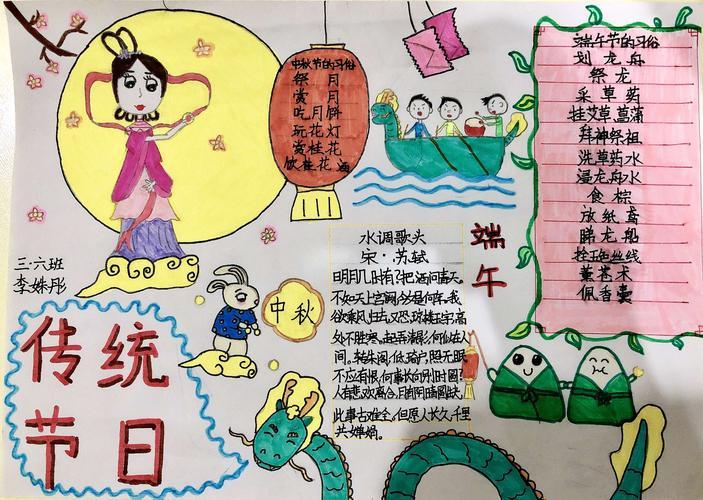 中秋节的习俗
祭月
赏月
吃月饼
玩花灯
赏桂花
饮桂花酒
端午节的习俗
划龙舟
祭龙
采草药
挂艾草菖蒲
拜神祭祖
洗草药水
浸龙舟水
食粽
放纸鸢
睇龙船
拴五色丝线
薰苍术
佩香囊
端午
水调歌头
宋·苏轼
明月几时有?把酒问青天。
不知天上宫阙,今夕是何年。我
欲乘风归去,又恐琼楼玉宇,高
处不胜寒。起舞清影,何似在人
间。转朱阁,低绮户,照无眠
不应有恨,何事长向别时圆?
人有悲欢离合,月有阴晴圆缺,
此事古难全。但愿人长久,千里
共婵娟。
三·六班
李姝彤
中秋
传统
节日